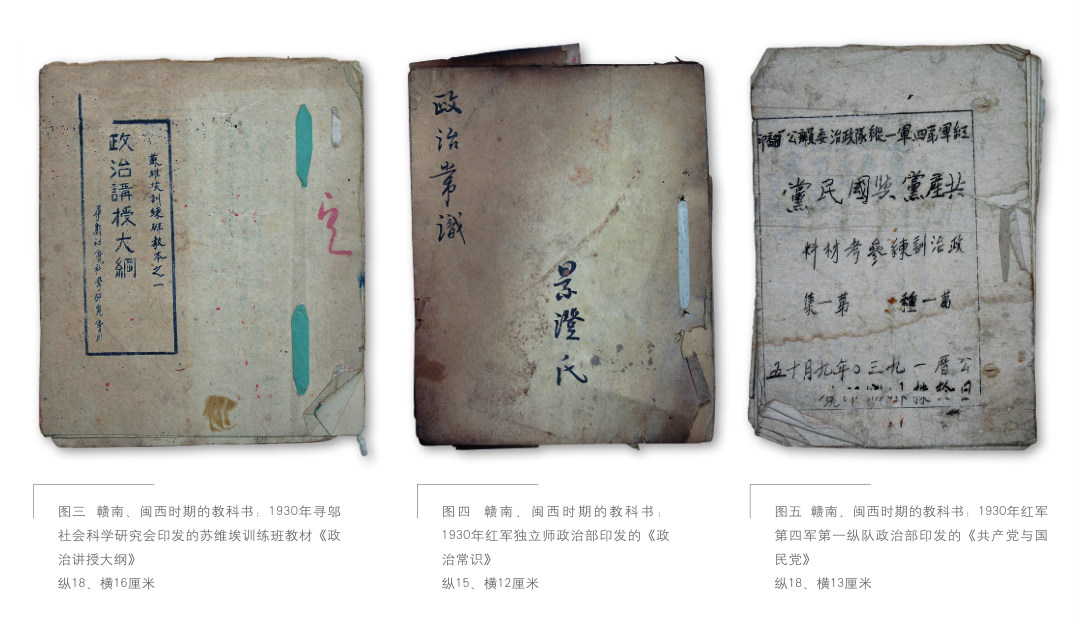 蘇維埃訓練班教本之一
政治講授大綱
政治常識
景澄氏
紅軍第四軍一縱隊政治委員辦公廳翻印
共產黨與國民黨
政治訓練參考材料
第一種 第一集
公曆一九三〇年九月十五
日於
图三 赣南、闽西时期的教科书：1930年寻邬
社会科学研究会印发的苏维埃训练班教材《政
治讲授大纲》
纵18、横16厘米
图四 赣南、闽西时期的教科书：
1930年红军独立师政治部印发的《政
治常识》
纵15、横12厘米
图五 赣南、闽西时期的教科书：1930年红军
第四军第一纵队政治部印发的《共产党与国
民党》
纵18、横13厘米